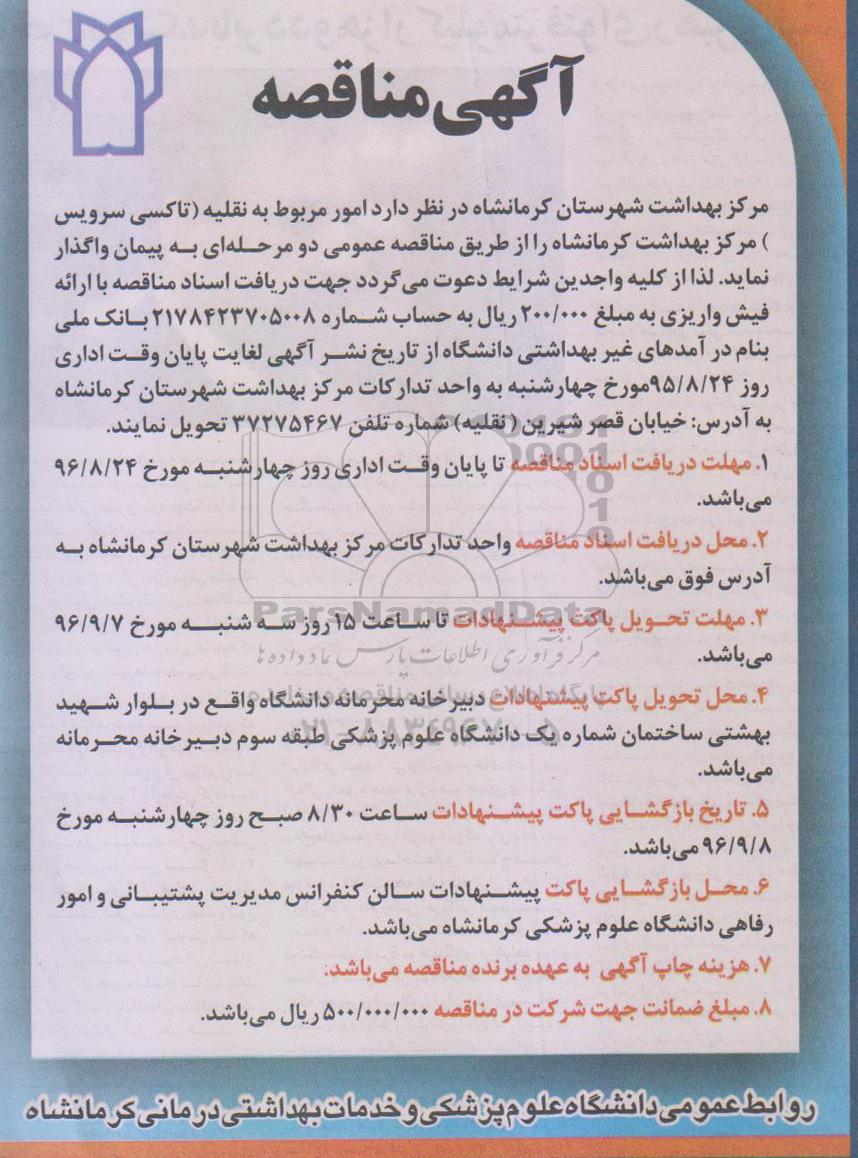 آگهی مناقصه
مرکز بهداشت شهرستان کرمانشاه در نظر دارد امور مربوط به نقلیه (تاکسی سرویس
) مرکز بهداشت کرمانشاه را از طریق مناقصه عمومی دو مرحله‌ای به پیمان واگذار
نماید. لذا از کلیه واجدین شرایط دعوت می‌گردد جهت دریافت اسناد مناقصه با ارائه
فیش واریزی به مبلغ ۲۰۰/۰۰۰ ریال به حساب شماره ۲۱۷۸۴۲۳۷۰۵۰۰۸ بانک ملی
بنام در آمدهای غیر بهداشتی دانشگاه از تاریخ نشر آگهی لغایت پایان وقت اداری
روز ۹۵/۸/۲۴مورخ چهارشنبه به واحد تدارکات مرکز بهداشت شهرستان کرمانشاه
به آدرس: خیابان قصر شیرین (نقلیه) شماره تلفن ۳۷۲۷۵۴۶۷ تحویل نمایند.
۱. مهلت دریافت اسناد مناقصه تا پایان وقت اداری روز چهارشنبه مورخ ۹۶/۸/۲۴
می‌باشد.
۲. محل دریافت اسناد مناقصه واحد تدارکات مرکز بهداشت شهرستان کرمانشاه به
آدرس فوق می‌باشد.
ParsNamadData
۳. مهلت تحویل پاکت پیشنهادات تا ساعت ۱۵ روز سه شنبه مورخ ۹۶/۹/۷
می‌باشد.
مرکز فرآوری اطلاعات پارس نماد داده ها
۴. محل تحویل پاکت پیشنهادات دبیرخانه محرمانه دانشگاه واقع در بلوار شهید
بهشتی ساختمان شماره یک دانشگاه علوم پزشکی طبقه سوم دبیرخانه محرمانه
می‌باشد.
۵. تاریخ بازگشایی پاکت پیشنهادات ساعت ۸/۳۰ صبح روز چهارشنبه مورخ
۹۶/۹/۸ می‌باشد.
۶. محل بازگشایی پاکت پیشنهادات سالن کنفرانس مدیریت پشتیبانی و امور
رفاهی دانشگاه علوم پزشکی کرمانشاه می‌باشد.
۷. هزینه چاپ آگهی به عهده برنده مناقصه می‌باشد.
۸. مبلغ ضمانت جهت شرکت در مناقصه ۵۰۰/۰۰۰/۰۰۰ ریال می‌باشد.
روابط عمومی دانشگاه علوم پزشکی و خدمات بهداشتی درمانی کرمانشاه